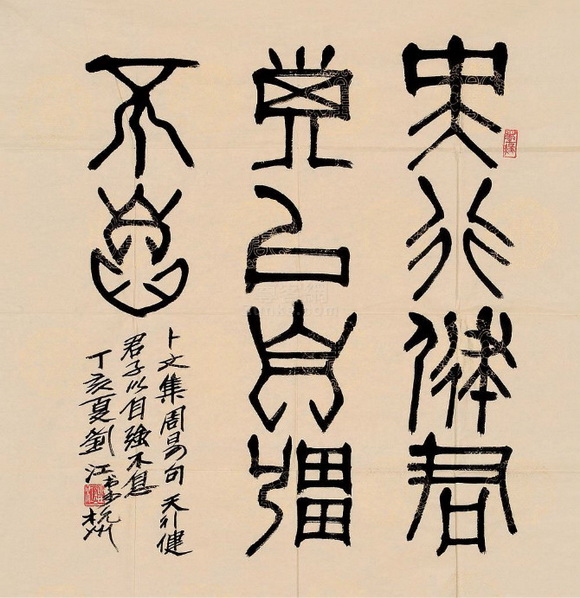 天行健君
子以自彊
不息
卜文集周易句天行健
君子以自強不息
丁亥夏劉江書於杭州